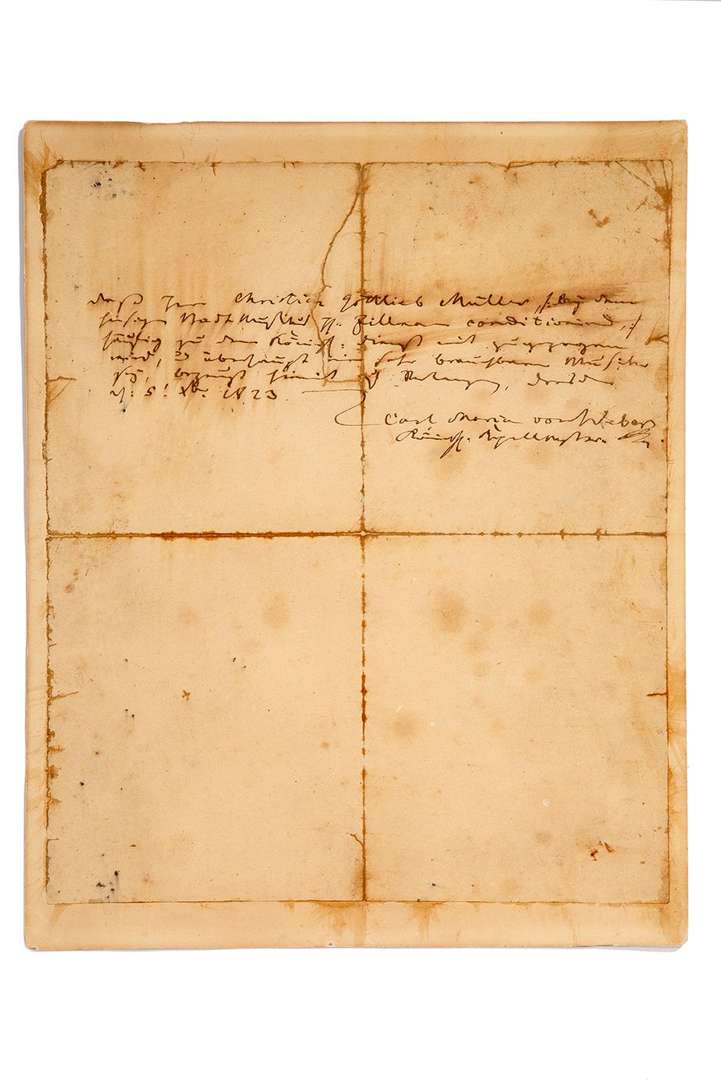 daß Herr Christian Gottlieb Müller, /: bey dem
hiesigen Stadt Musikus H: Zillmann conditionirend, :/
häufig zu dem Königl: Dienst mit zugezogen
wird, und überhaupt ein sehr brauchbarer Musiker
sey, bezeugt hiemit auf Verlangen, Dresden
d: 5: 1823.
Carl Maria von Weber
Königl: Kapellmeister